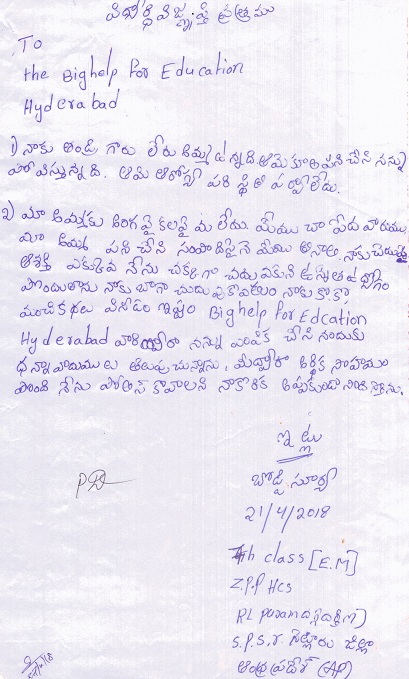 విద్యార్థి విజ్ఞప్తి పత్రము
To
the Bighelp For Education
Hyderabad
1) నాకు తండ్రి గారు లేరు అమ్మ ఉన్నది. ఆమె కూలి పని చేసి నన్ను
పోషిస్తున్నది. ఆమె ఆరోగ్య పరిస్థితి పర్వాలేదు.
2) మా అమ్మకు మేము చాలా పేద వారము
మా అమ్మ పని చేసి మేము తినాలి. నాకు చదువు
ఆశక్తి ఎక్కువ నేను చక్కగా చదువుకుని ఉన్నత ఉద్యోగం
పొందుతాను నాకు బాగా చదువుకోవటం నాకు
మంచి కథలు వినడం ఇష్టం Bighelp For Edcation
Hyderabad వారి ద్వారా నన్ను ఎంపిక చేసినందుకు
ధన్యావాదములు తెలుపుచున్నాను. మీ ద్వారా ఆర్థిక సాహాయం
పొంది నేను పోలీస్ కావాలని నా కోరిక తప్పకుండా
ఇట్లు
బొడ్డి సూర్య
21/4/2018
7th class [E.M]
Z.P.P HCS
RL Puram
S.P.S.r నెల్లూరు జిల్లా
ఆంధ్రప్రదేశ్ (AP)